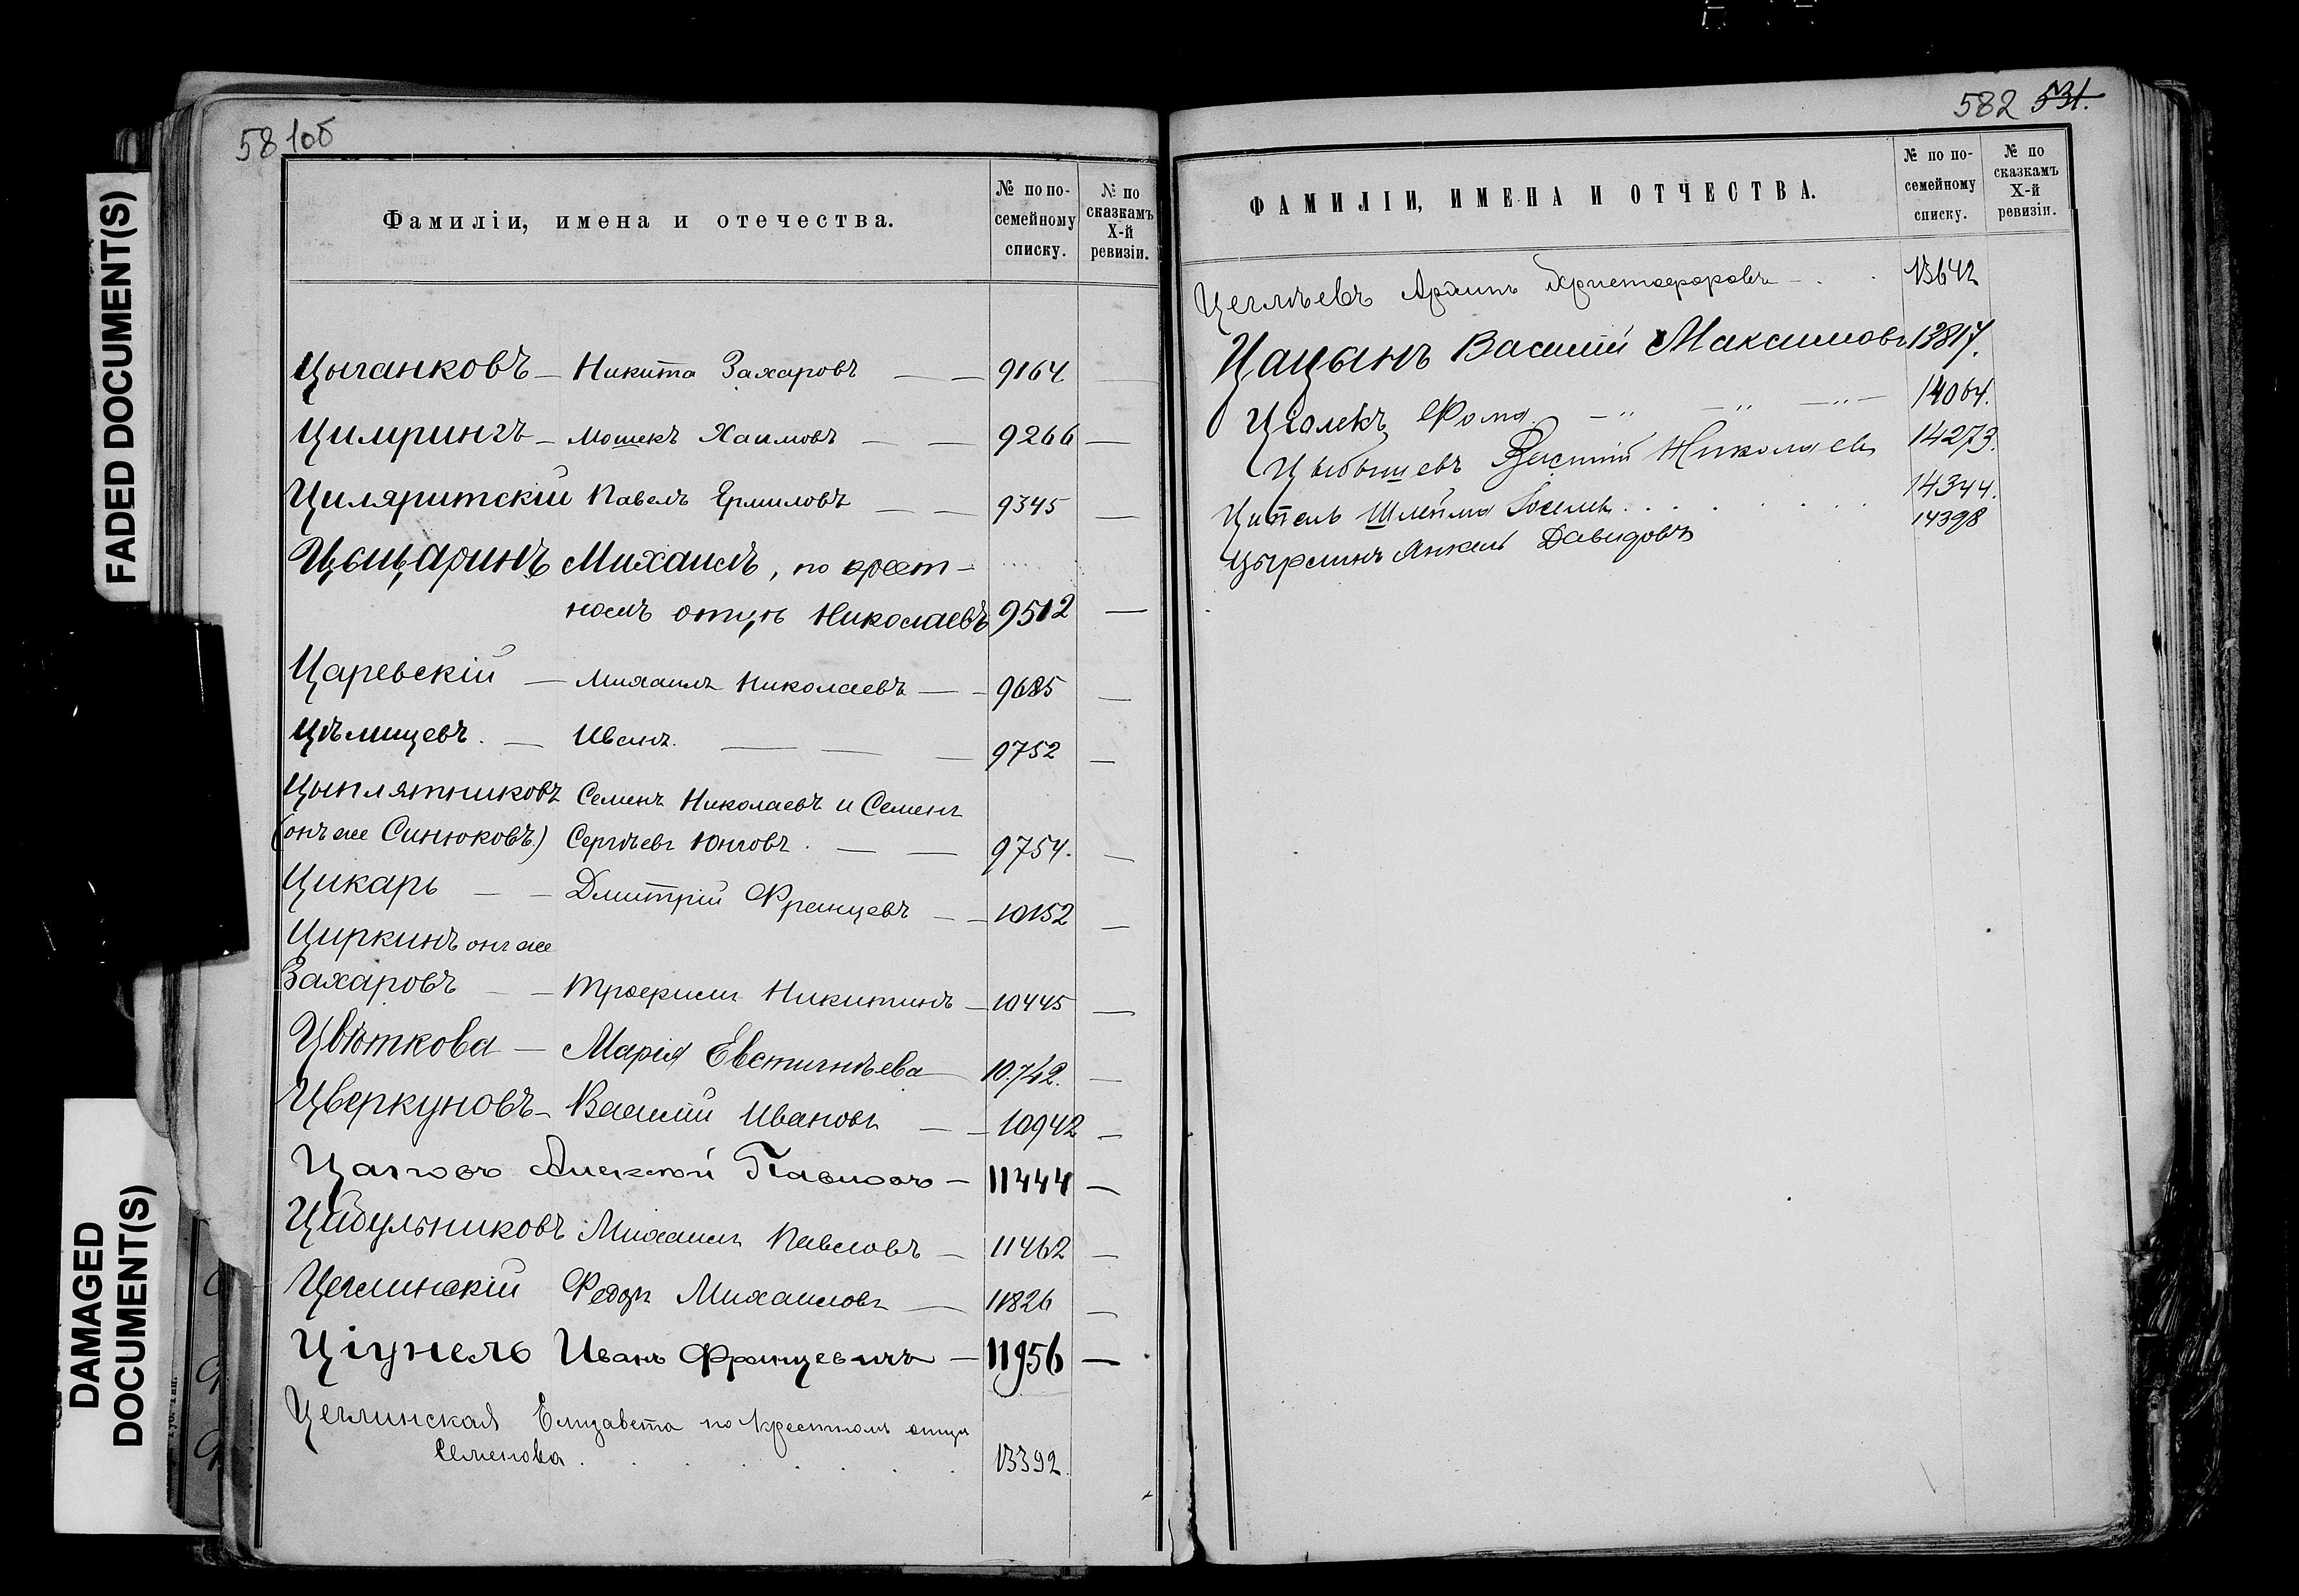 FADED DOCUMENT(S)
DAMAGED
DOCUMENT(S)
581об
Фамиліи, имена и отечества.
№ по по-
семейному
списку.
№ по
сказкамъ
X-й
ревизіи.
Цыганковъ — Никита Захаровъ — — 9164
Цимрингъ — Мошекъ Хаимовъ — — 9266 —
Циляритскій Павелъ Ермиловъ — — 9345 —
Михаилъ, по крест-
номъ отцѣ Николаевъ 9512 —
Царевскій — Михаилъ Николаевъ — — 9685 —
Цѣлищевъ. — Иванъ. — — — 9752 —
Цыплятниковъ Семенъ Николаевъ и Семенъ
(онъ же Синюковъ) Сергѣевъ Юнговъ. — — 9754. —
Цикарь — — Дмитрій Францевъ — — 10152 —
Циркинъ онъ же
Захаровъ — — Трофимъ Никитинъ — 10445 —
Цвѣткова — Марія Евстигнѣева — 10.742. —
Цверкуновъ — Василій Ивановъ — — 10942 —
Цаговъ Алексѣй Павловъ — 11444 —
Цибульниковъ Михаилъ Павловъ — 11462 —
Цеглинскій Федоръ Михаиловъ — 11826 —
Ціунель Иванъ Францевичъ — 11956 —
Цеглинская Елизавета по крестномъ отцѣ
Семенова . . . . . . 13392.
582 531.
ФАМИЛІИ, ИМЕНА И ОТЧЕСТВА.
№ по по-
семейному
списку.
№ по
сказкамъ
X-й
ревизіи.
Цеглѣевъ Архипъ Христофоровъ — . . 13642
Цацынъ Василій Максимовъ 13817.
Ціолекъ Фома. —"— —"— —"— 14064.
Цыбышевъ Василій Николаевъ 14273.
Ципель Шлейма . . . . . 14344.
Цырлинъ Янкель Давидовъ 14398